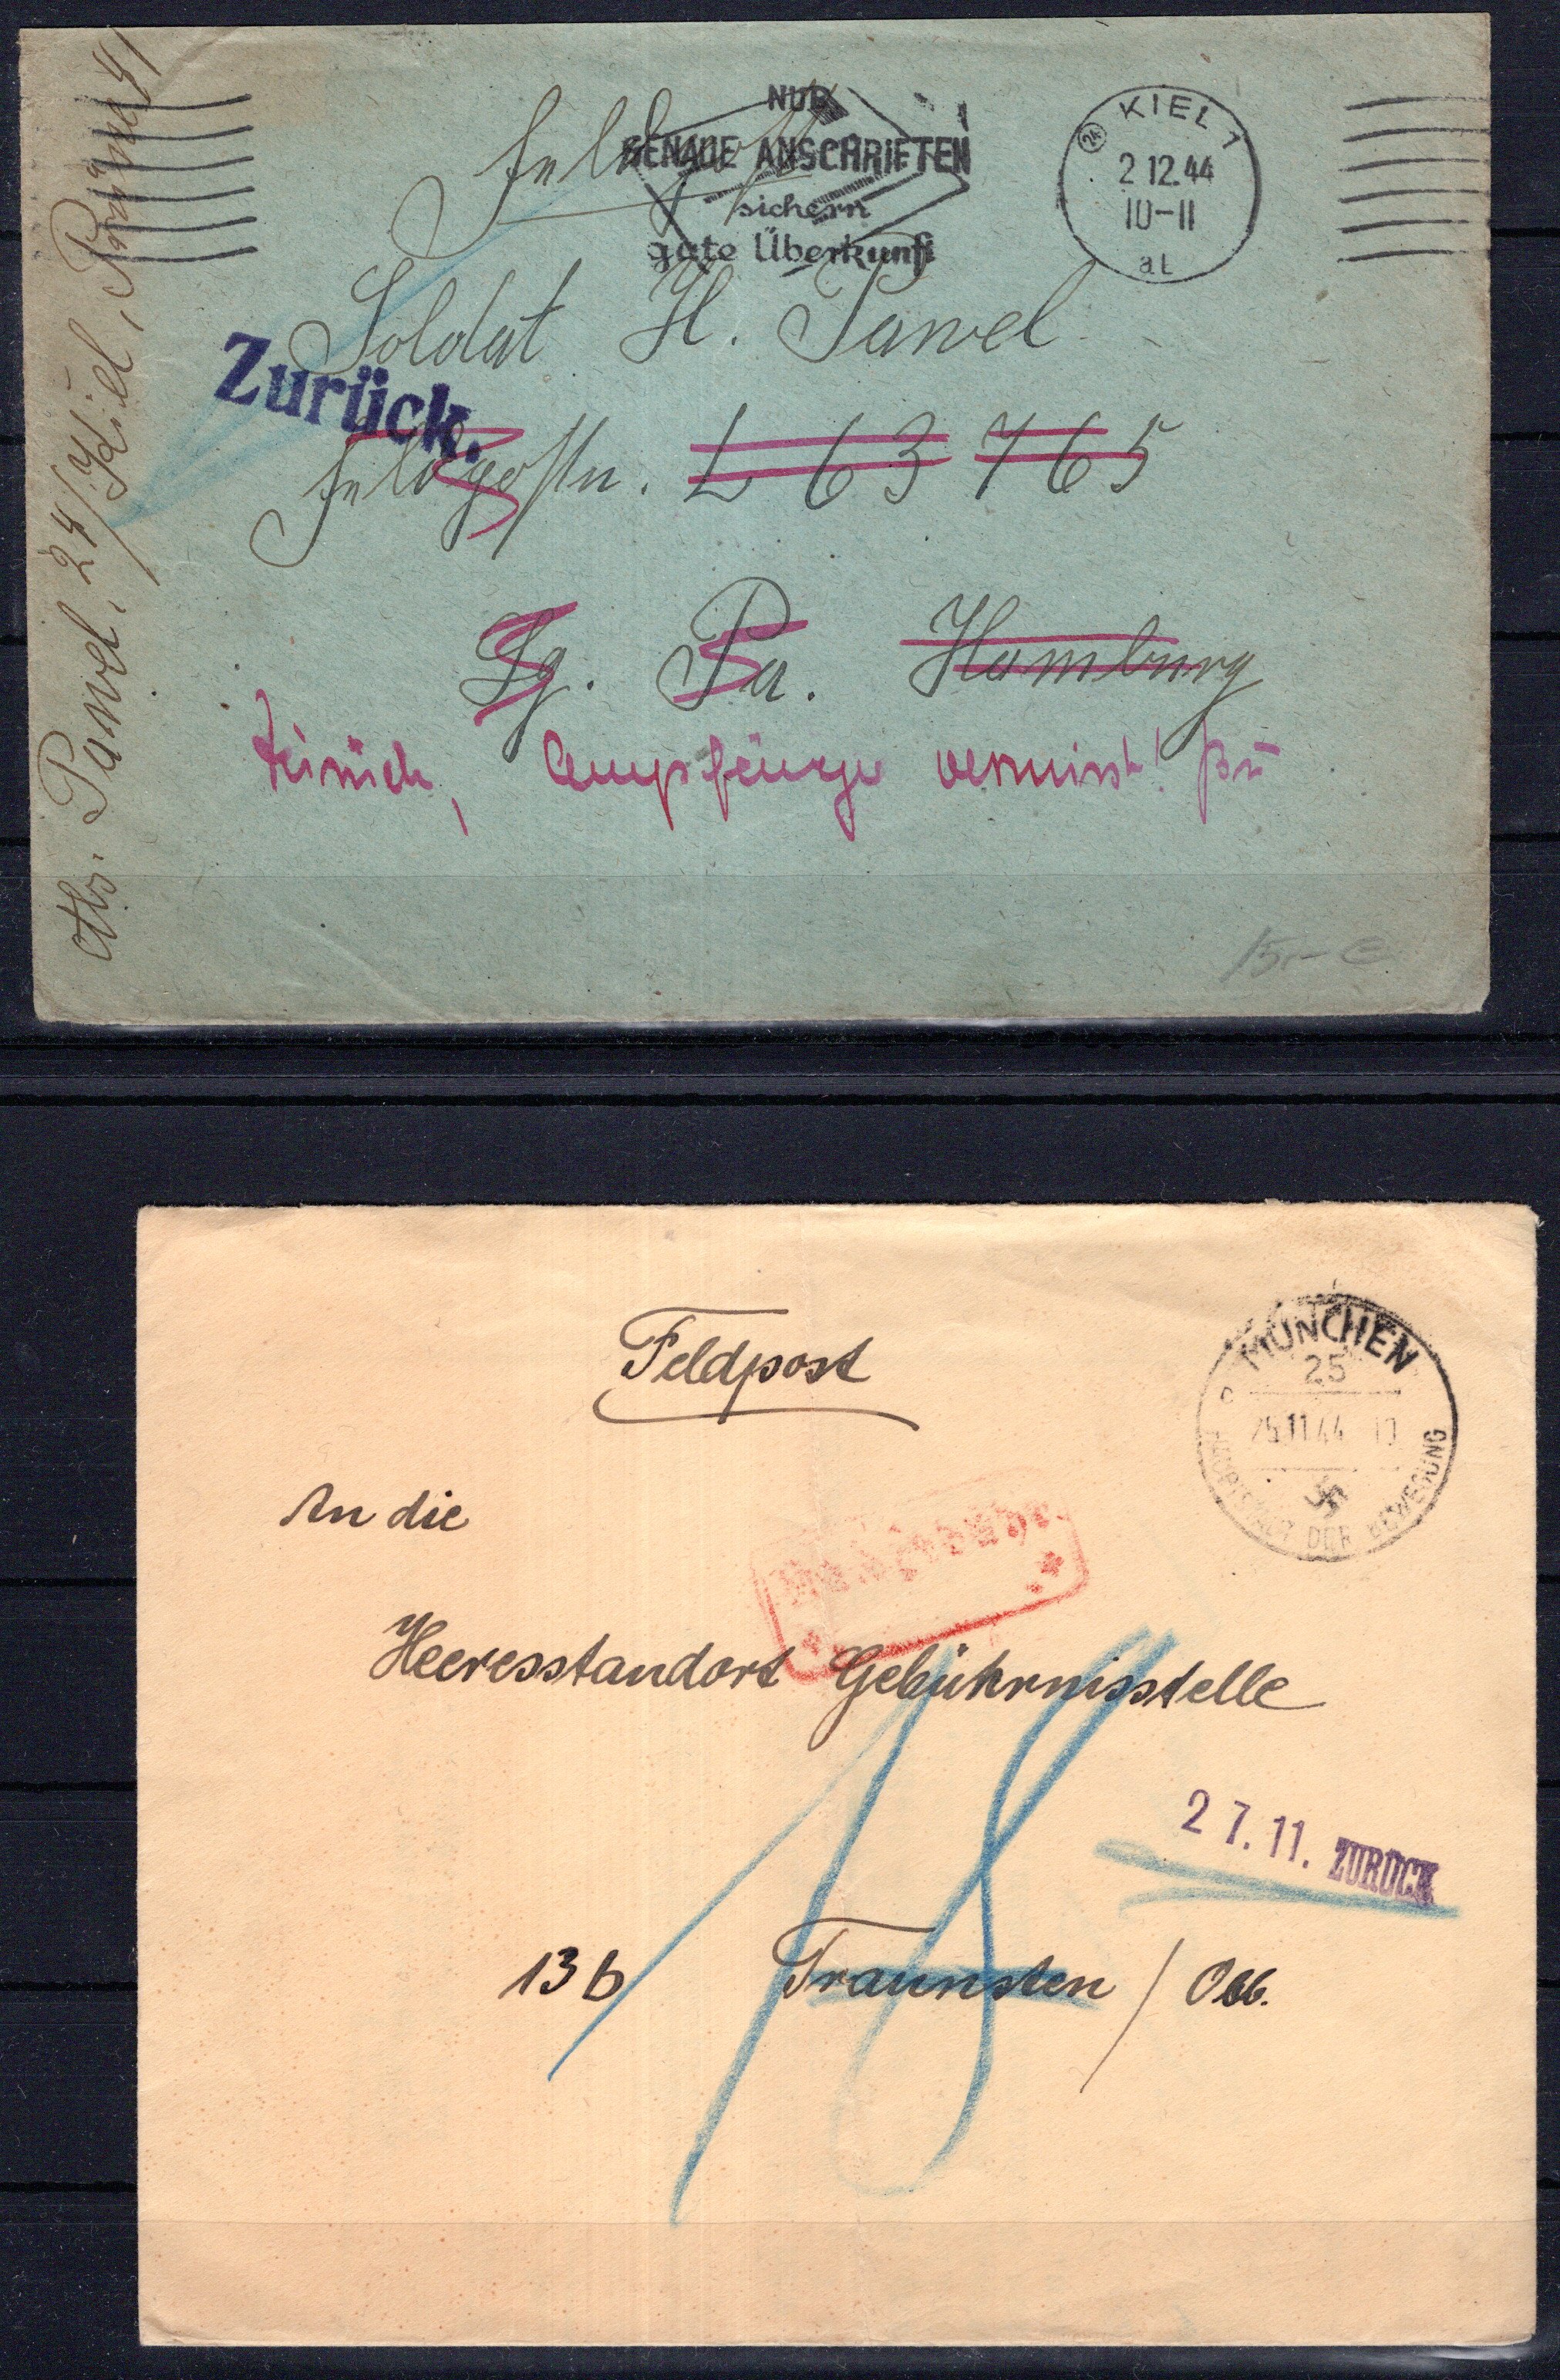 Feldpost
NUR
GENAUE ANSCHRIFTEN
sichern
gute Überkunft
KIEL 1
24
2 12.44
10-11
at
Soldat H. Pawel
Zurück.
Feldpostn. L 63 765
Lg. Pa. Hamburg
Zurück, Empfänger vermisst!
15,- €
Abs. Pawel, 24/Kiel,
Feldpost
MÜNCHEN
25
25.11.44
HAUPTSTADT DER BEWEGUNG
An die
Nachgebühr
Heeresstandort Gebührnisstelle
18
27.11. ZURÜCK
13b Traunsten / Obb.